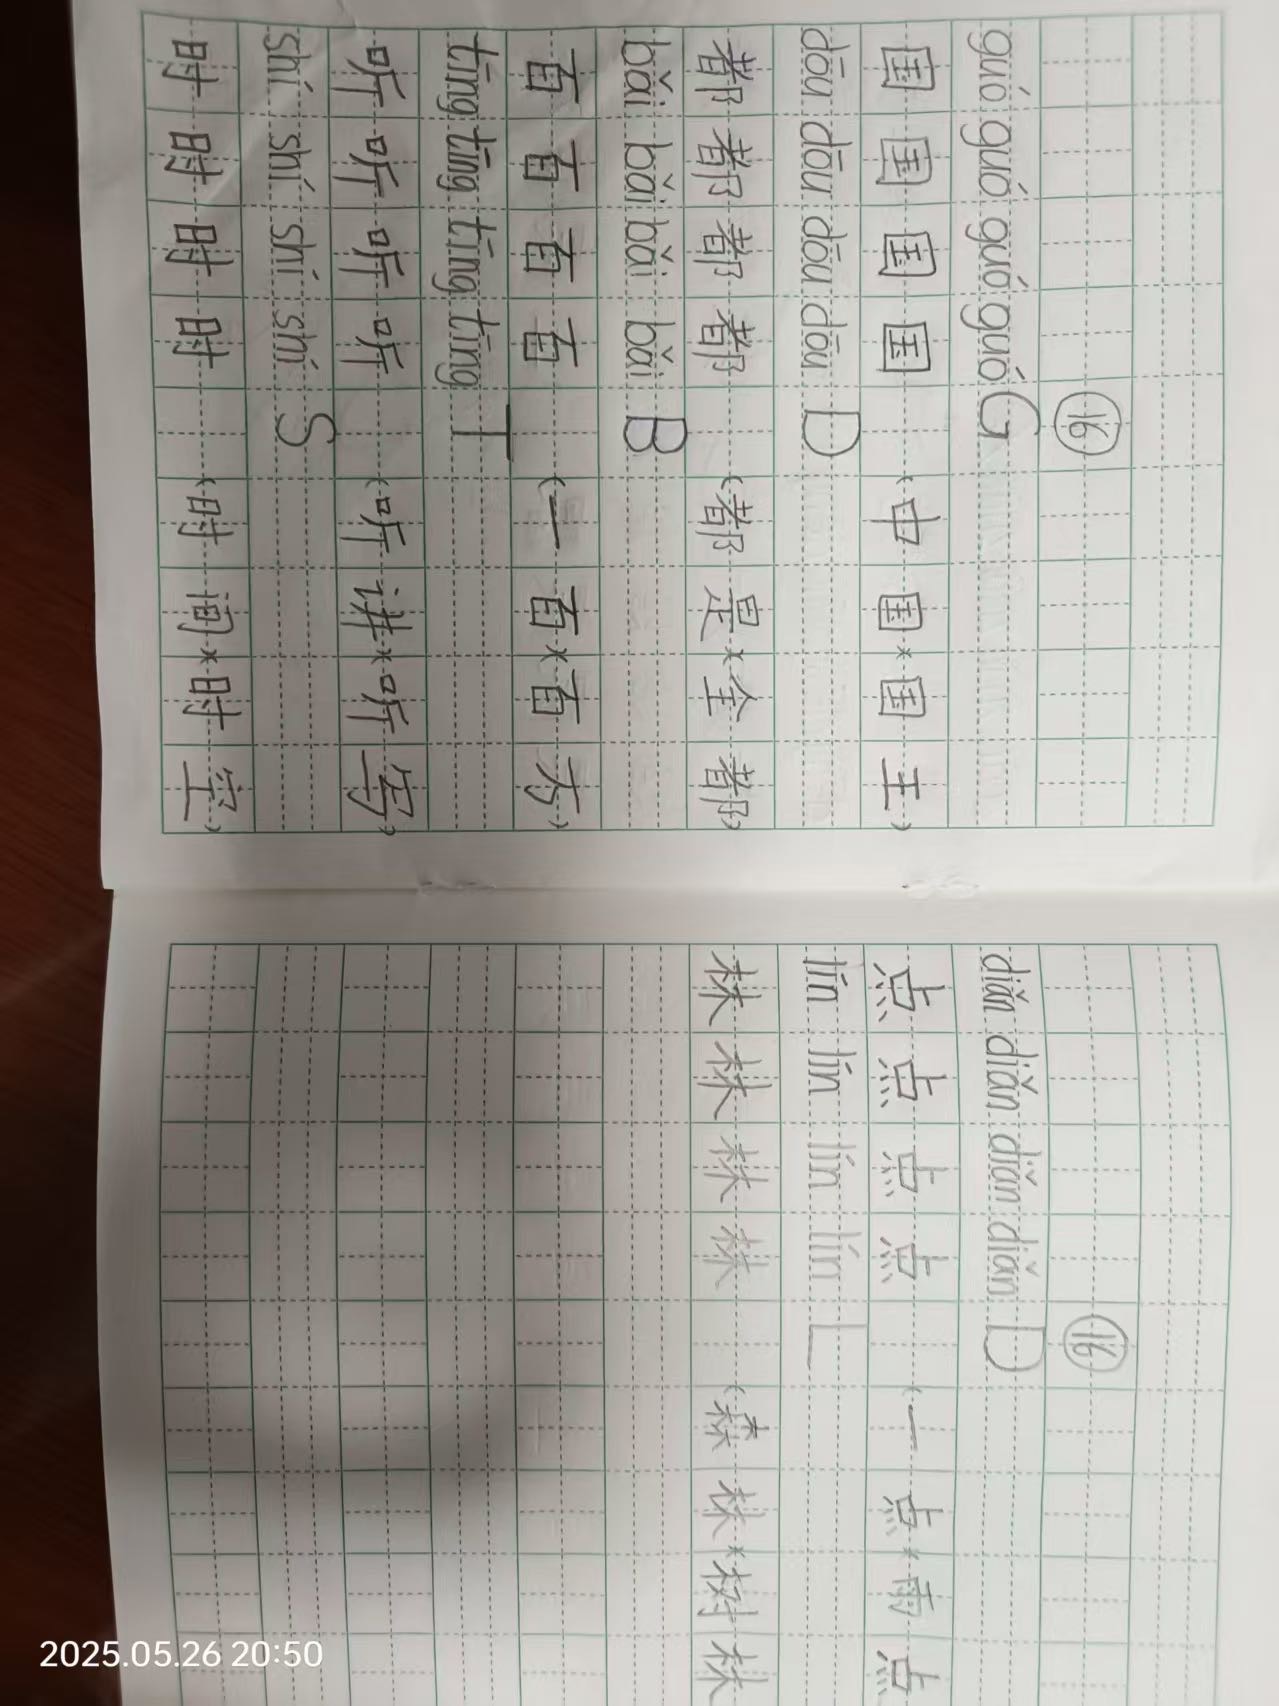 ⑯
guó guó guó guó G
国 国 国 国 (中国 国王)
dōu dōu dōu dōu D
都 都 都 都 (都是 全都)
bǎi bǎi bǎi bǎi B
百 百 百 百 (一百 百方)
tīng tīng tīng tīng T
听 听 听 听 (听讲 听写)
shí shí shí shí S
时 时 时 时 (时间 时空)
⑯
diǎn diǎn diǎn diǎn D
点 点 点 点 (一点 雨点
lín lín lín lín L
林 林 林 林 (森林 树林
2025.05.26 20:50